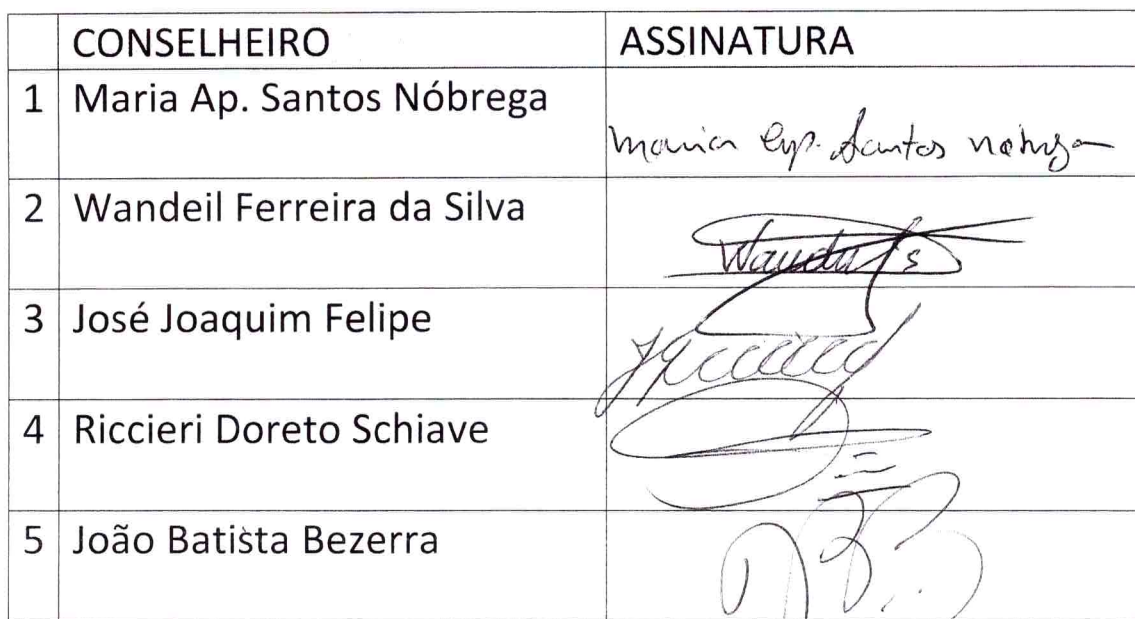 CONSELHEIRO ASSINATURA
1 Maria Ap. Santos Nóbrega
Maria Ap. Santos Nobrega
2 Wandeil Ferreira da Silva
3 José Joaquim Felipe
4 Riccieri Doreto Schiave
5 João Batista Bezerra